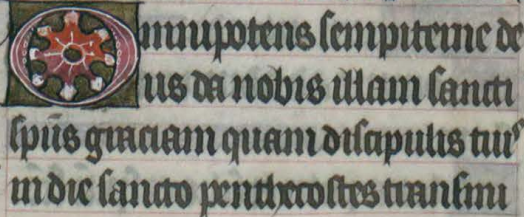 Omnipotens sempiterne de
us da nobis illam sancti
spiis graciam quam discipulis tuis
in die sancto penthecostes transmi